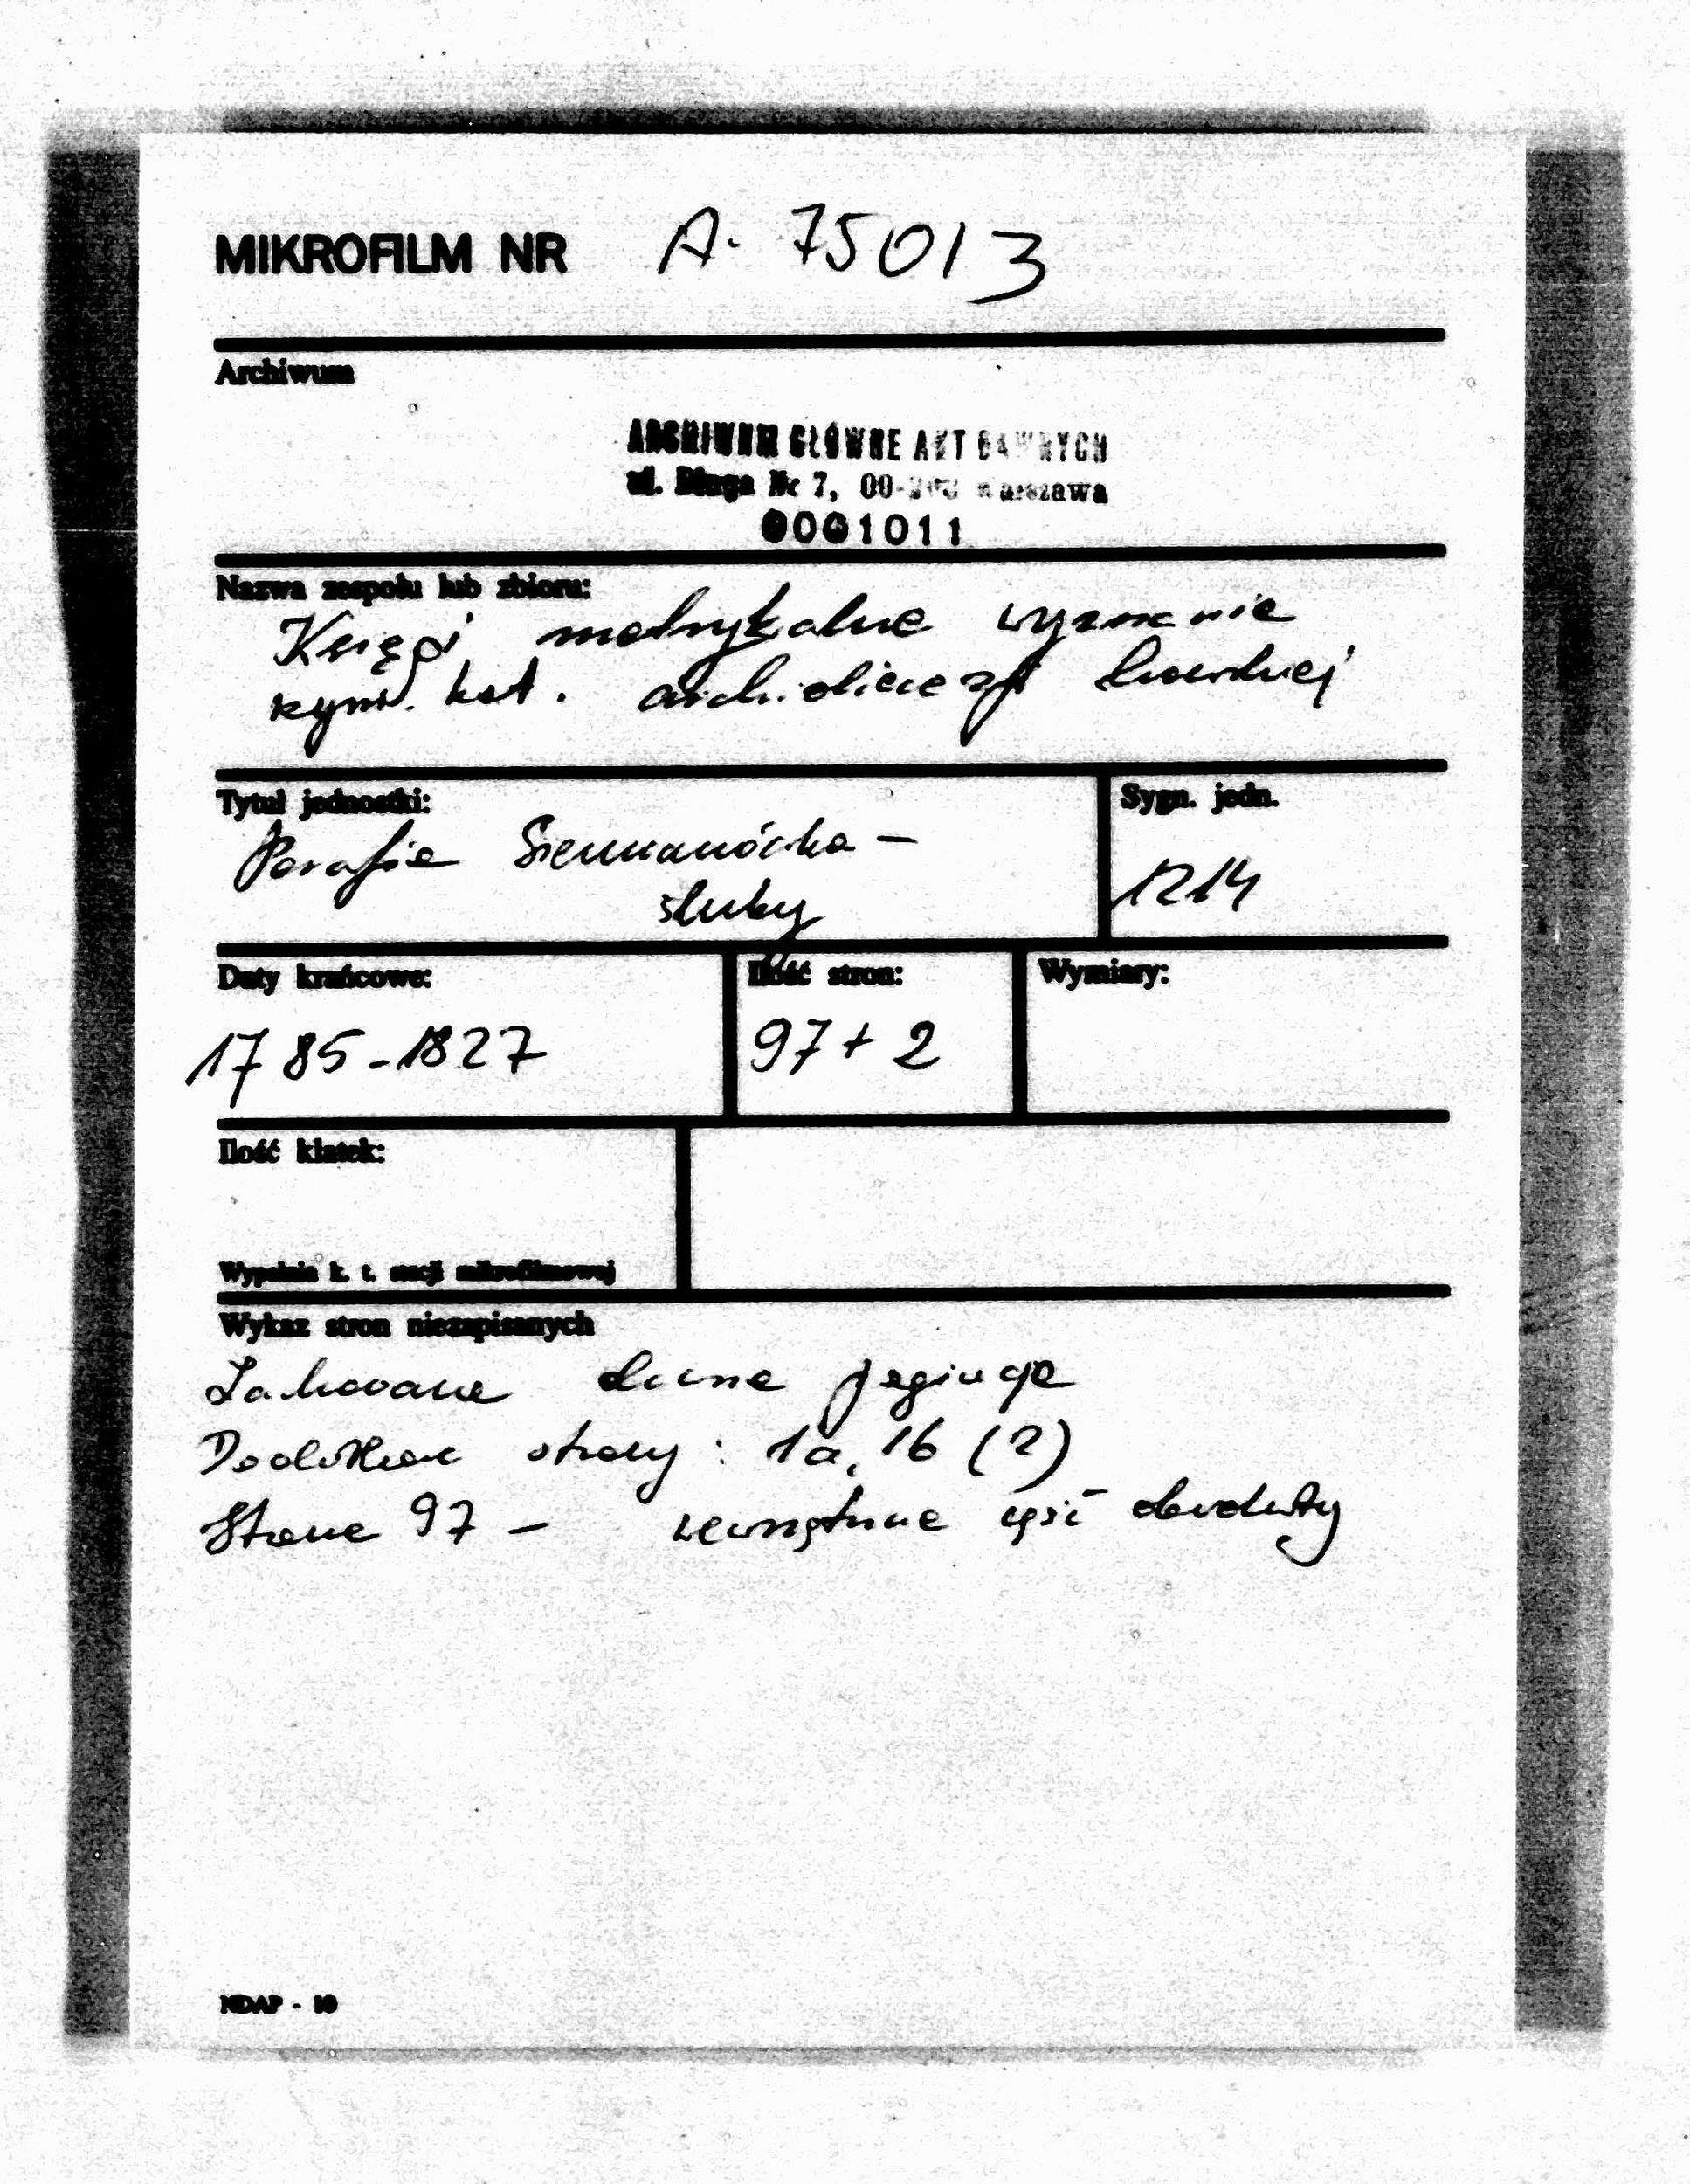 MIKROFILM NR A. 75013
Archiwum
ARCHIWUM GŁÓWNE AKT DAWNYCH
ul. Długa Nr 7, 00- Warszawa
0001011
Nazwa zespołu lub zbioru:
Księgi metrykalne wyznanie
rzym. kat. archidiecezji lwowskiej
Tytuł jednostki:
Sygn. jedn.
Parafia Siemianówka -
śluby
1214
Daty krańcowe:
Ilość stron:
Wymiary:
1785-1827
97+2
Ilość klatek:
Wypełnia k. t. stacji mikrofilmowej
Wykaz stron niezapisanych
Zachowana dawna paginacja
Dodatkowe strony: 1a, 1b (2)
Strona 97 - wewnętrzna część okładki
NDAP - 10